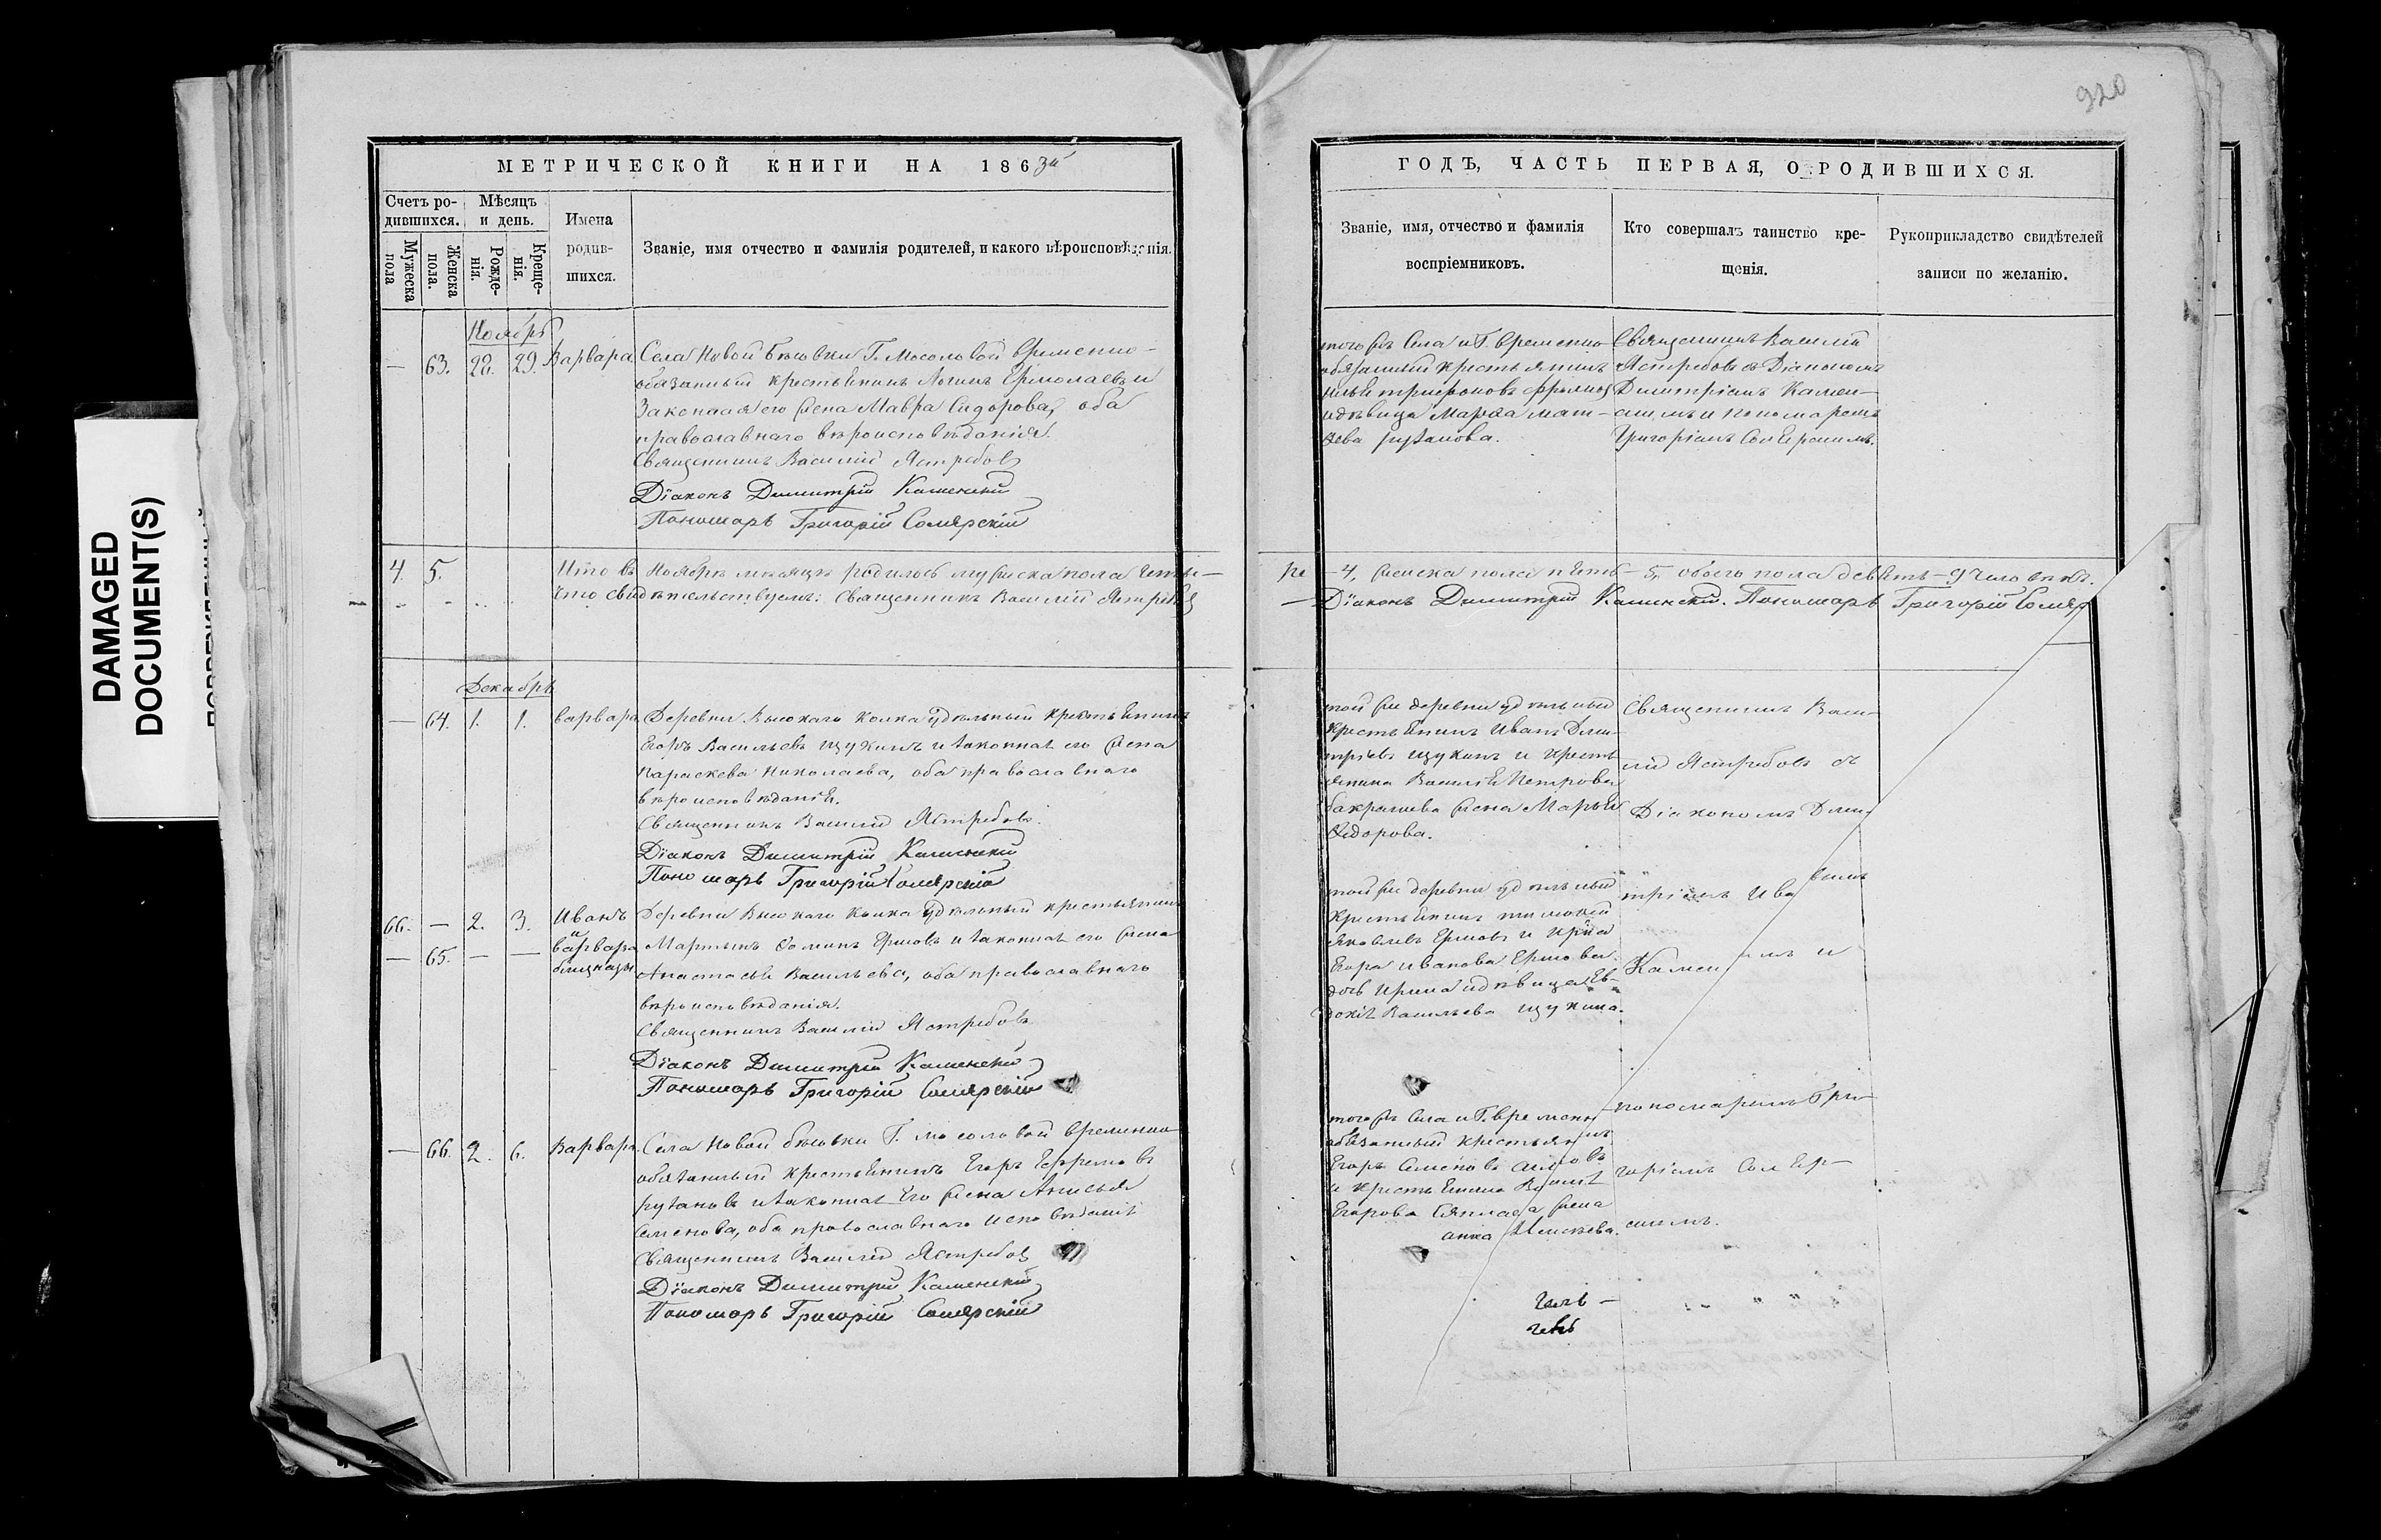 DAMAGED
DOCUMENT(S)
920
МЕТРИЧЕСКОЙ КНИГИ НА 1863й
Счетъ ро-
дившихся.
Мѣсяцъ
и день.
Имена
родив-
шихся.
Мужеска
пола
Женска
пола.
Рожде-
нія.
Креще-
нія.
Званіе, имя отчество и фамилія родителей, и какого вѣроисповѣданія.
Ноябрь
— 63. 28. 29. Варвара
Села Новой Бѣсовки Г. Мосоловой временно-
обязанный крестьянинъ Логинъ Ермолаевъ и
законная его жена Мавра Сидорова, оба
православнаго вѣроисповѣданія.
Священникъ Василій Ястребовъ
Діаконъ Димитрій Каменскій
Пономарь Григорій Сомярскій
4. 5. Итого въ Ноябрѣ мѣсяцѣ родилось мужеска пола четы-
Что свидѣтельствуемъ: Священникъ Василій Ястребовъ
Декабрь
— 64. 1. 1. Варвара
Деревни Высокаго Колка удѣльный крестьянинъ
Егоръ Васильевъ Щукинъ и законная его жена
Параскева Николаева, оба православнаго
вѣроисповѣданія.
Священникъ Василій Ястребовъ.
Діаконъ Димитрій Каменскій
Пономарь Григорій Сомярскій
66. — 2. 3. Иванъ
и
— 65. — — Варвара
близнецы
Деревни Высокаго Колка удѣльный крестьянинъ
Мартынъ Ѳоминъ Ершовъ и законная его жена
Анастасья Васильева, оба православнаго
вѣроисповѣданія.
Священникъ Василій Ястребовъ
Діаконъ Димитрій Каменскій
Пономарь Григорій Сомярскій
— 66. 2. 6. Варвара
Села Новой Бѣсовки Г. Мосоловой временно
обязанный крестьянинъ Егоръ Ефремовъ
Рузановъ и законная его жена Анисья
Семенова, оба православнаго исповѣданія
Священникъ Василій Ястребовъ
Діаконъ Димитрій Каменскій
Пономарь Григорій Сомярскій
ГОДЪ, ЧАСТЬ ПЕРВАЯ, О РОДИВШИХСЯ.
Званіе, имя, отчество и фамилія
воспріемниковъ.
Кто совершалъ таинство кре-
щенія.
Рукоприкладство свидѣтелей
записи по желанію.
того жъ Села и Г. временно
обязанный крестьянинъ
и дѣвица Марѳа Мат-
ѳева Рузанова.
Священникъ Василій
Ястребовъ съ Діакономъ
Димитріемъ Камен-
скимъ и Пономаремъ
Григоріемъ Сомярскимъ.
ре — 4, женска пола пять — 5, обоего пола девять — 9 человѣкъ.
Діаконъ Димитрій Каменскій. Пономарь Григорій Сомяр
той же деревни удѣльный
крестьянинъ Иванъ Дми-
тріевъ Щукинъ и кресть
янина Василія Петрова
Бакрашева жена Марья
Ѳедорова.
Священникъ Васи-
лій Ястребовъ съ
Діакономъ Дми-
той же деревни удѣльный
крестьянинъ Тимоѳей
Яковлевъ Ершовъ и кр-на
Егора Иванова Ершова
дочь Ирина и дѣвица Ев-
докія Васильева Щукина.
тріемъ Ива
Камен имъ и
того жъ Села и Г. времен
обязанный крестьянинъ
Егоръ Семеновъ
и крестьянина
Егорова жена
анна Алексѣева.
пономаремъ Гри-
горіемъ Сомяр-
скимъ.